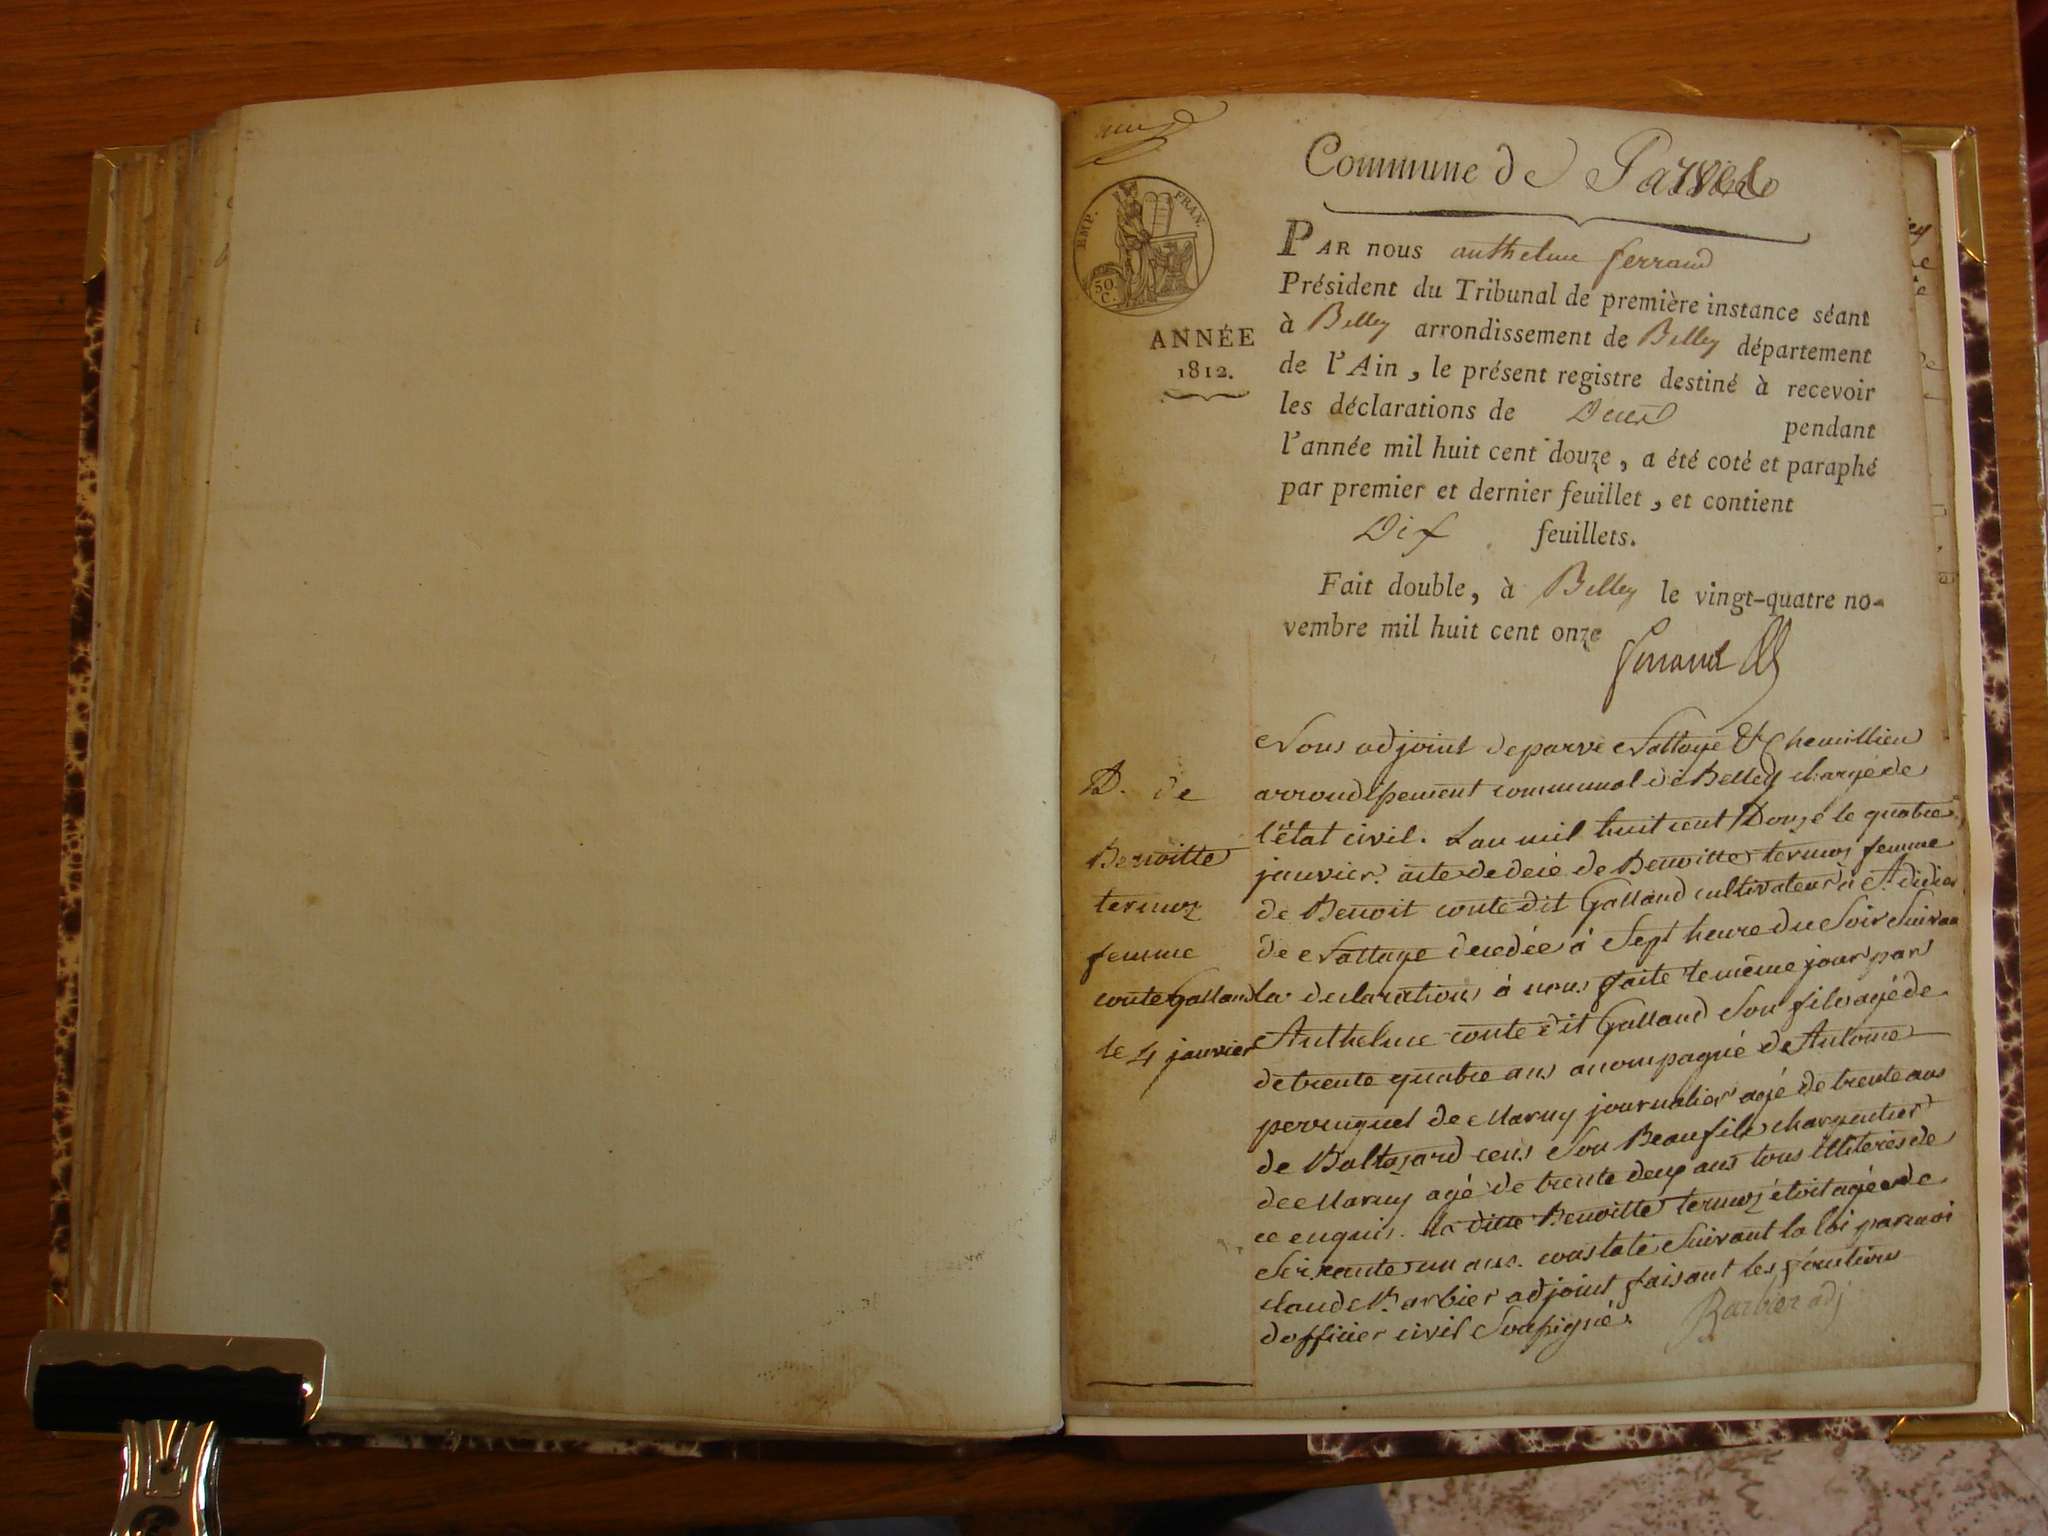 Commune de Parves
EMP. FRAN.
50
C.
ANNÉE
1812.
PAR nous anthelme ferrand
Président du Tribunal de première instance séant
à Belley arrondissement de Belley département
de l'Ain, le présent registre destiné à recevoir
les déclarations de Deces pendant
l'année mil huit cent douze, a été coté et paraphé
par premier et dernier feuillet, et contient
Dix feuillets.
Fait double, à Belley le vingt-quatre no-
vembre mil huit cent onze
ferrand
D. de
Benoitte
termoz
femme
conte Galland
le 4 janvier
Nous adjoint de parve Nattage & Chemillieu
arrondissement communal de Belley chargé de
l'état civil. L'an mil huit cent Douze le quatre
janvier. acte de decé de Benoitte termoz femme
de Benoit conte dit Galland cultivateur à St. didier
de Nattage decedée à Sept heure du Soir Suivan
la declaration à nous faite le même jour par
Anthelme conte dit Galland Son fils agé de
de trente quatre ans acompagné de Antoine
perruquet de Marny journalier agé de trente ans
de Baltazard Son Beaufils charpentier
de Marny agé de trente deux ans tous Illiterés de
ce enquis. la ditte Benoitte termoz étoit agée de
Soixante un ans. constaté Suivant la loi par moi
claude Barbier adjoint faisant les fonctions
d'officier civil Soussigné.
Barbier adj